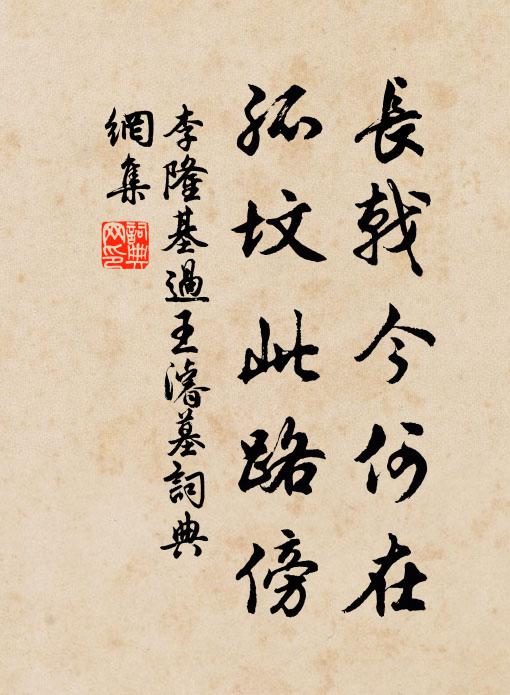 長戟今何在
孤墳此路傍
李隆基過王濬墓詞典
網集
詞典
网印